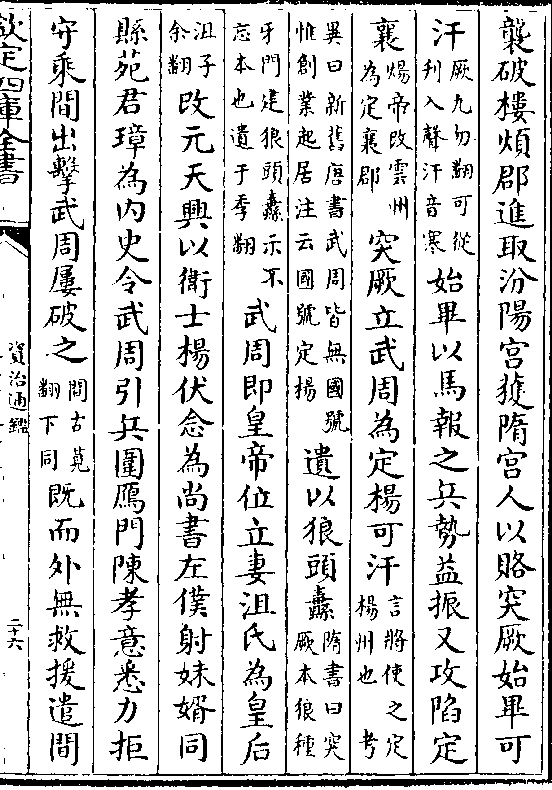 襲破樓煩郡進取汾陽宮獲隋宮人以賂突厥始畢可
汗厥九勿翻可從刋入聲汗音寒始畢以馬報之兵勢益振又攻陷定
襄煬帝改雲州為定襄郡突厥立武周為定楊可汗言將使之定楊州也考
異曰新舊唐書武周皆無國號惟創業起居注云國號定楊遺以狼頭纛隋書曰突厥本狼種
牙門建狼頭纛示不忘本也遺于季翻武周即皇帝位立妻沮氏為皇后
沮子余翻改元天興以衛士楊伏念為尚書左僕射妹婿同
縣苑君璋為内史令武周引兵圍鴈門陳孝意悉力拒
守乘間出擊武周屢破之間古莧翻下同既而外無救援遣間
欽定四庫全書
資治通鑑
二十六